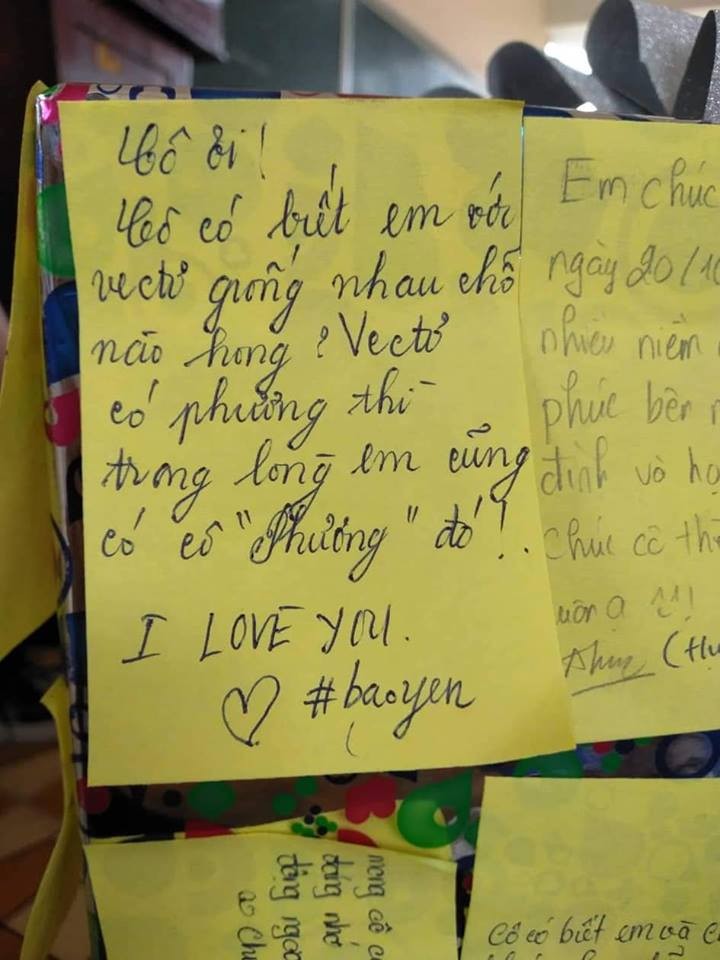 Cô ơi!
Cô có biết em với
vectơ giống nhau chỗ
nào hong? Vectơ
có phương thì
trong lòng em cũng
có cô "Phương" đó!.
I LOVE YOU.
♡ #baoyen
Em chúc
ngày 20/10
nhiều niềm
phúc bên
đình và
chúc cô
ạ
mong cô
đáng nhớ
Cô có biết em và